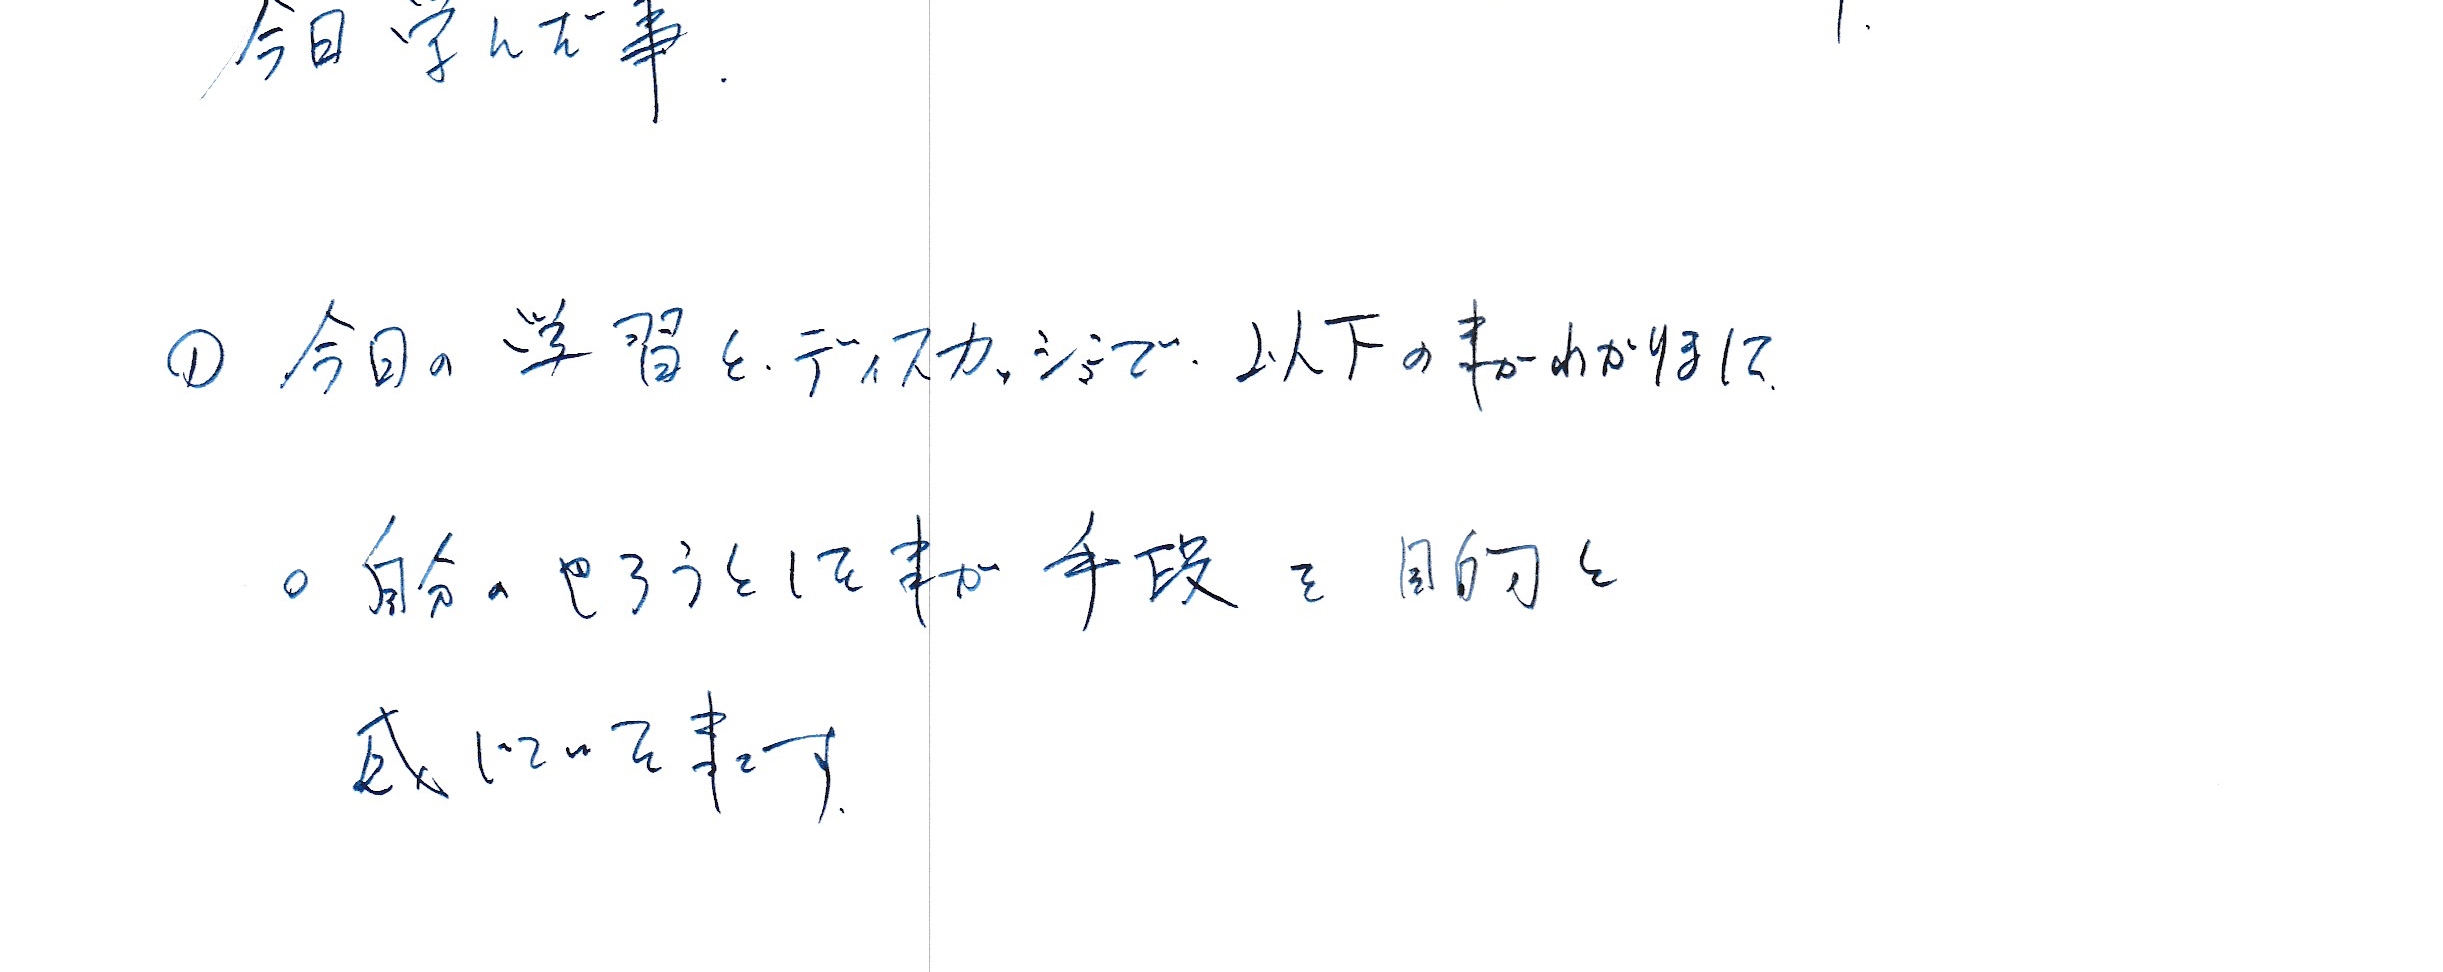 今日学んだ事.
① 今日の学習と.ディスカッションで.以下の事がわかりました.
○ 自分のやろうとした事が手段を目的と
感じていた事です.